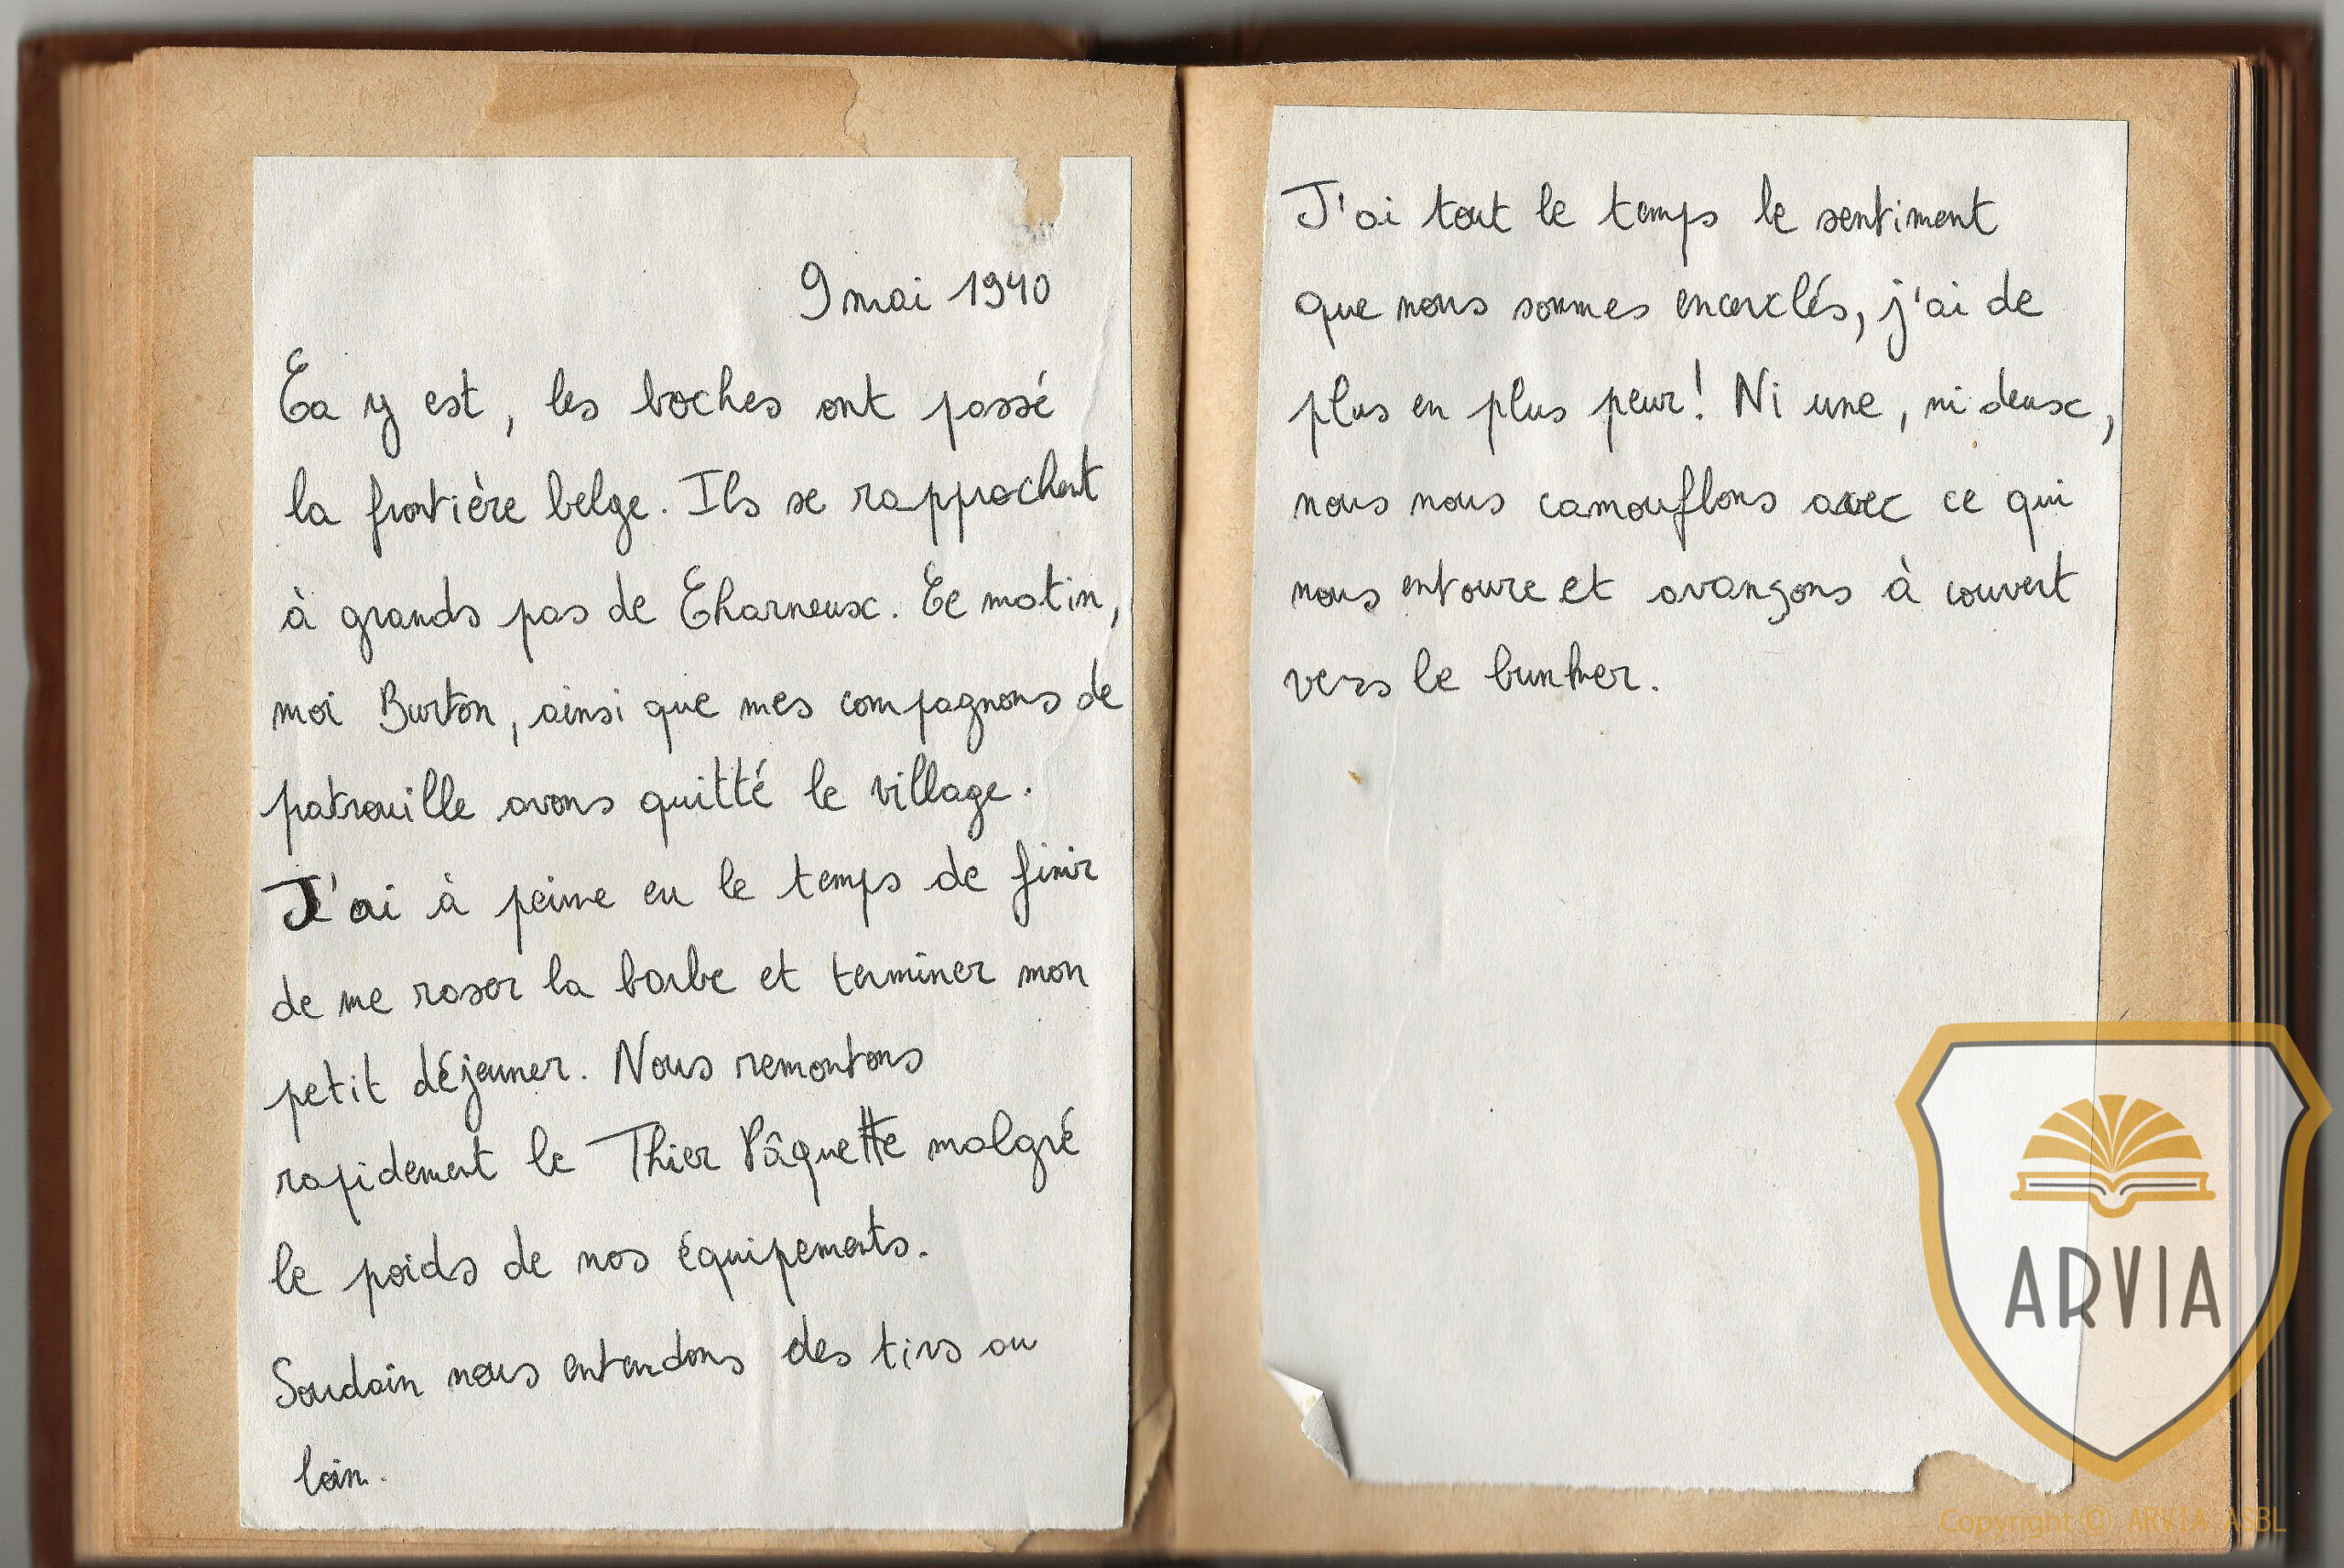 9 mai 1940
Ca y est, les boches ont passé
la frontière belge. Ils se rapprochent
à grands pas de Charneux. Ce matin,
moi Burton, ainsi que mes compagnons de
patrouille avons quitté le village.
J'ai à peine eu le temps de finir
de me raser la barbe et terminer mon
petit déjeuner. Nous remontons
rapidement le Thier Pâquette malgré
le poids de nos équipements.
Soudain nous entendons des tirs au
loin.
J'ai tout le temps le sentiment
que nous sommes encerclés, j'ai de
plus en plus peur! Ni une, ni deux,
nous nous camouflons avec ce qui
nous entoure et avançons à couvert
vers le bunker.
ARVIA
Copyright © ARVIA ASBL